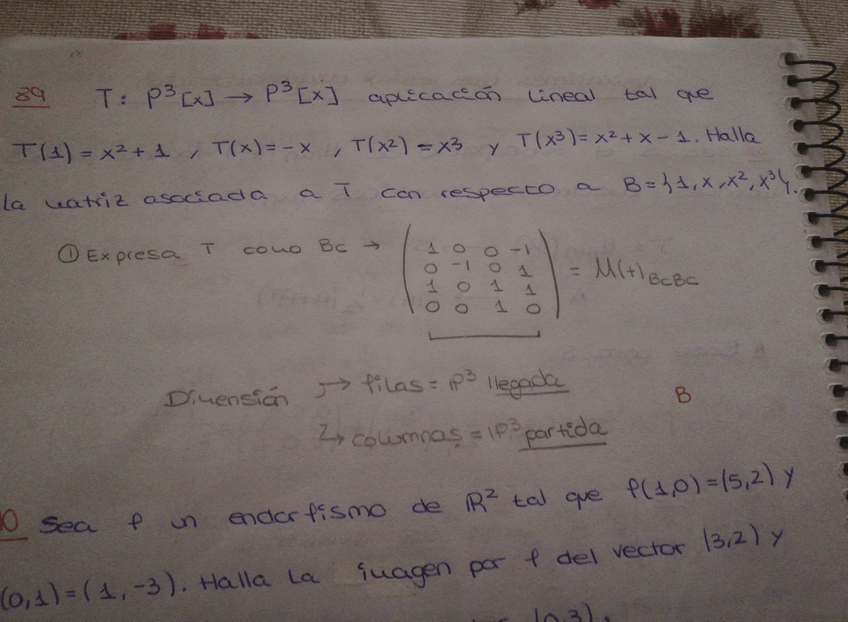 89 T: P³[x] → P³[x] aplicación lineal tal que
T(1) = x² + 1 , T(x) = -x , T(x²) = x³ y T(x³) = x² + x - 1. Halla
la matriz asociada a T con respecto a B = {1, x, x², x³}.
① Expresa T como Bc →
1 0 0 -1
0 -1 0 1
1 0 1 1
0 0 1 0
= M(t) BcBc
Dimensión → filas = P³ llegada
→ columnas = P³ partida
B
0 Sea f un endorfismo de R² tal que f(1,0) = (5,2) y
(0,1) = (1,-3). Halla la imagen por f del vector (3,2) y
(0,3).